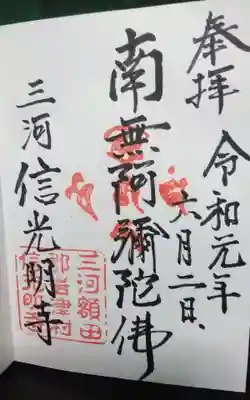 奉拝
令和元年
六月二日、
南無阿彌陀佛
三河信光明寺
三河額田
郡岩津村
信光明寺